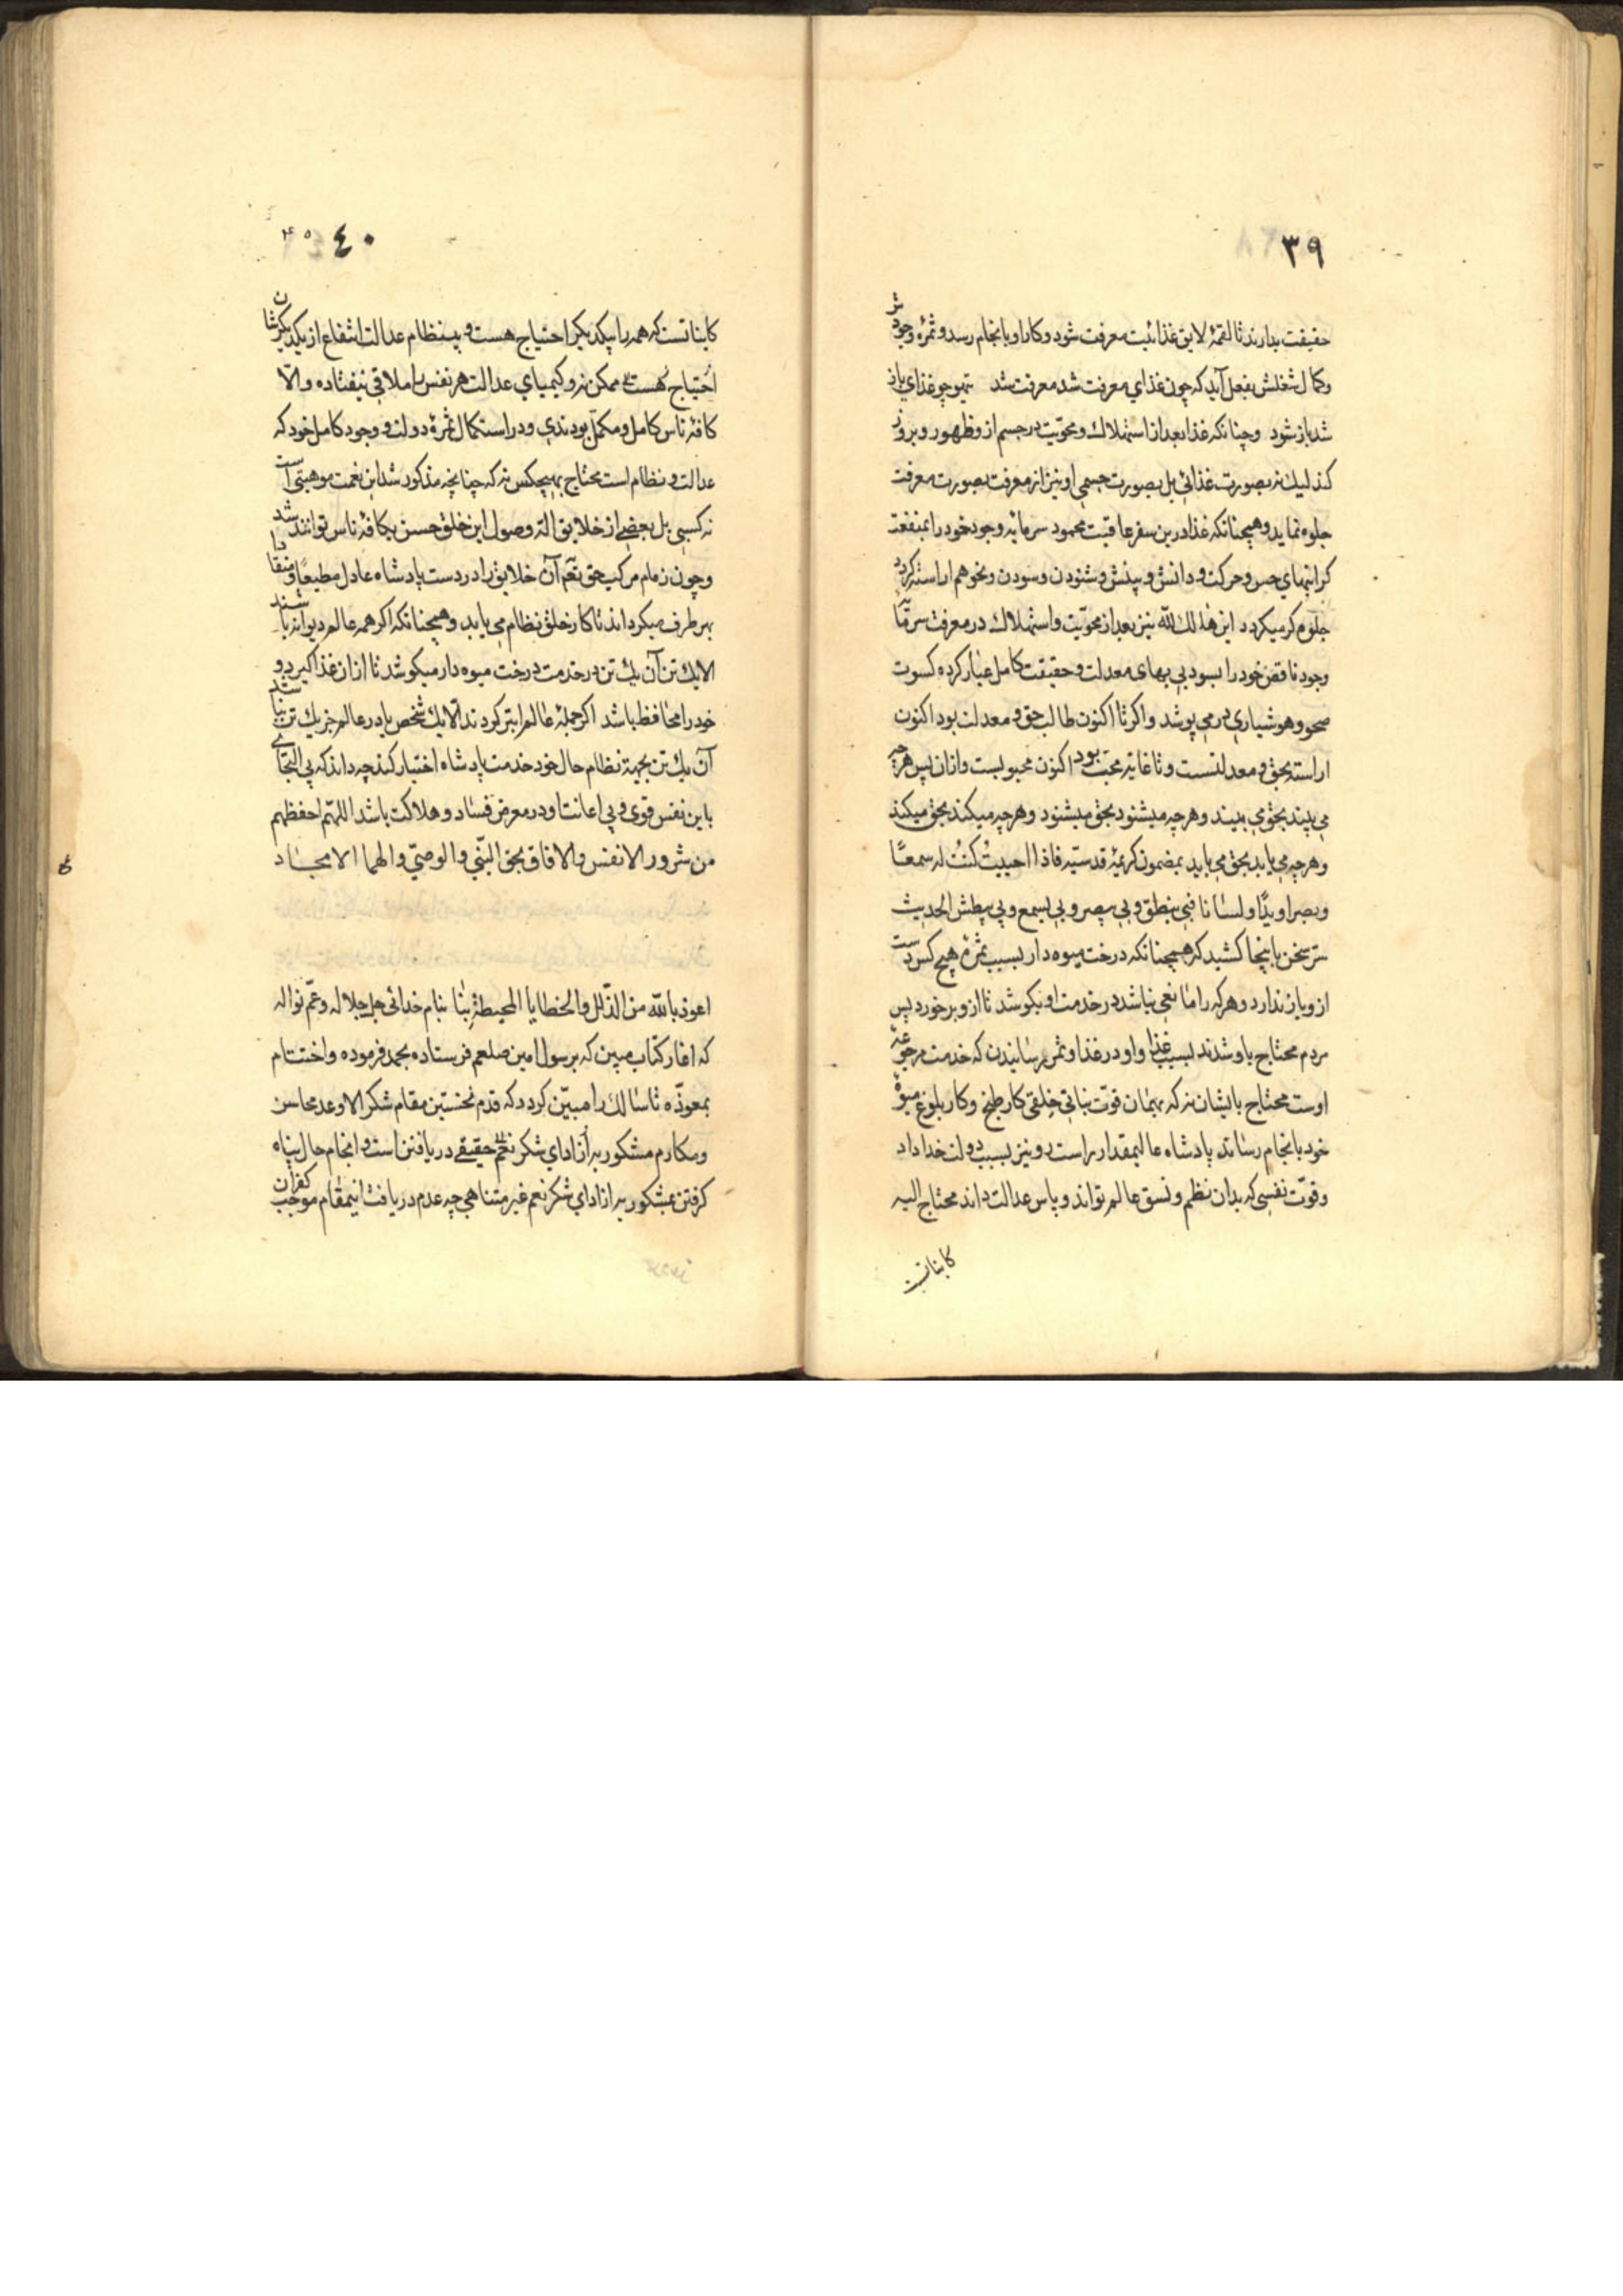 ٣٩
حقیقت بدارند تا لقمهٔ لایق غذائیت معرفت شود و کار او بانجام رسد و ثمرهٔ وجودش
وکمال شغلش بفعل آید که چون غذای معرفت شد معرفت شد همچو غذای باز
شد باز شود وچنانکه غذا بعد از استهلاك ومحویّت در جسم از و ظهور و بروز
کذلیك نه بصورت غذائی بل بصورت جسمی او نیز از معرفت بصورت معرفت
جلوه نماید وهمچنانکه غذا درین سفر عاقبت محمود سرمایه وجود خود را بمنفعت
کرانبهای حس وحرکت و دانش و بینش وشنودن وسودن ونحوهم اراسته کرده
جلوه کر میکردد این هالك لله نیز بعد از محویّت واستهلاك در معرفت سرمایهٔ
وجود ناقص خود را بسود بی بهای معدلت وحقیقت کامل عیار کرده کسوت
صحو وهوشیاری در می پوشد واکر تا اکنون طالب حق و معدلت بود اکنون
اراسته بحق و معدلتست و تا غایه محب بود اکنون محبوبست وازان پس هرچه
می بیند بحق می بیند وهرچه میشنود بحق میشنود وهرچه میکند بحق میکند
وهرچه می یابد بحق می یابد بمضمون کریمهٔ قدسیّه فاذا احببتُ کنتُ له سمعًا
وبصرا ویدًا ولسانا فبی ینطق وبی یبصر وبی یسمع وبی یبطش الحدیث
سر سخن باینجا کشید که همچنانکه درخت میوه دار بسبب ثمرهٔ هیچ کس دست
ازو باز ندارد وهرکه را مانعی نباشد در خدمت او بکوشد تا ازو برخورد پس
مردم محتاج باو شدند بسبب غذا واو در غذا و ثمر رسانیدن که خدمت مرجوعهٔ
اوست محتاج بایشان نه که بهمان قوّت نباتی خلقی کار طبخ وکار بلوغ میوهٔ
خود بانجام رساند پادشاه عالیمقدار راست و نیز بسبب دولت خداداد
وقوّت نفسی که بدان نظم ونسق عالم تواند وپاس عدالت داند محتاج الیه
کایناتست
٤٠
کایناتست که همه را بیکدیکر احتیاج هست و بینظام عدالت انتفاع از یکدیکرشان
احتیاج هست ممکن نه وکیمیای عدالت هر نفس را ملاقی نیفتاده والّا
کافهٔ ناس کامل ومکمّل بودندی ودر استکمال ثمرهٔ دولت و وجود کامل خود که
عدالت و نظام است محتاج بهیچکس نه که چنانچه مذکور شد این نعمت موهبتی است
نه کسبی بل بعضی از خلایق الة وصول این خلق حسن بکافهٔ ناس توانند شد
وچون زمام مرکب حق تعم آن خلایق را در دست پادشاه عادل مطیعًا و منقادا
بهر طرف میکرداند تا کار خلق نظام می یابد وهمچنانکه اکر همه عالم دیوانه باشند
الا یك تن آن یك تن در خدمت درخت میوه دار میکوشد تا ازان غذا کیرد و
خود را محافظ باشد اکر جملهٔ عالم ابتر کردند الّا یك شخص یا در عالم جز یك تن نباشد
آن یك تن بجهة نظام حال خود خدمت پادشاه اختیار کند چه داند که بی التجای
باین نفس قوی و بی اعانت او در معرض فساد و هلاکت باشد اللهم احفظهم
من شرور الانفس والافاق بحق النّبی والوصیّ والهما الامجاد
اعوذ بالله من الذّلل والخطایا المحیطة بنا بنام خدائی جل جلاله وعمّ نواله
که اغاز کتاب مبین که برسول امین صلعم فرستاده بحمد فرموده واختتام
بمعوّذه تا سالك را مبیّن کردد که قدم نخستین مقام شکر الا وعد محاسن
ومکارم مشکور به ازادای شکر نعم حقیقی دریافتن است و انجام حال پناه
کرفتن بمشکور به ازادای شکر نعم غیر متناهی چه عدم دریافت اینمقام موجب کفران